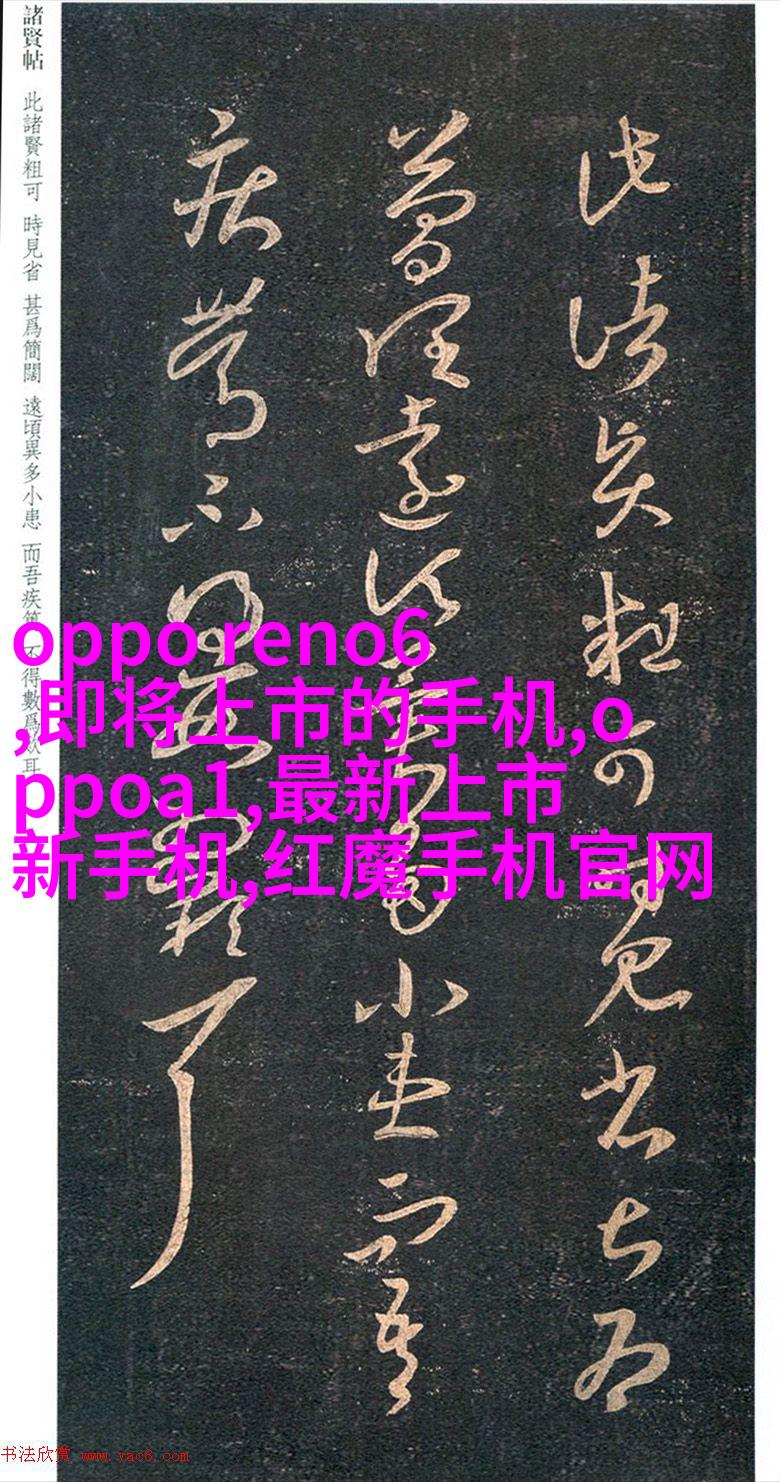 此諸賢粗可時見省甚爲
簡闊遠頃異多小患而吾
疾篤不得數爲歎耳
諸賢帖 此諸賢粗可 時見省 甚爲簡闊 遠頃異多小患 而吾疾篤 不得數爲歎耳
oppo reno6
,即将上市的手机,o
ppoa1,最新上市
新手机,红魔手机官网
书法欣赏 www.yac8.com